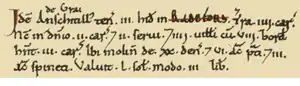 de Grai
Idē Anschitill ten. iii. hid in Radeford. Tra. iiii. car.
Ne in dnio. ii. car. 7 ii. serui. 7 iiii. uitti cū. viii. bord
hnt. iii. car. Ibi molin de. xx. den. 7 vi. ac pti. 7 iii.
ac spineti. Valuit. l. sol. modo. iii. lib.